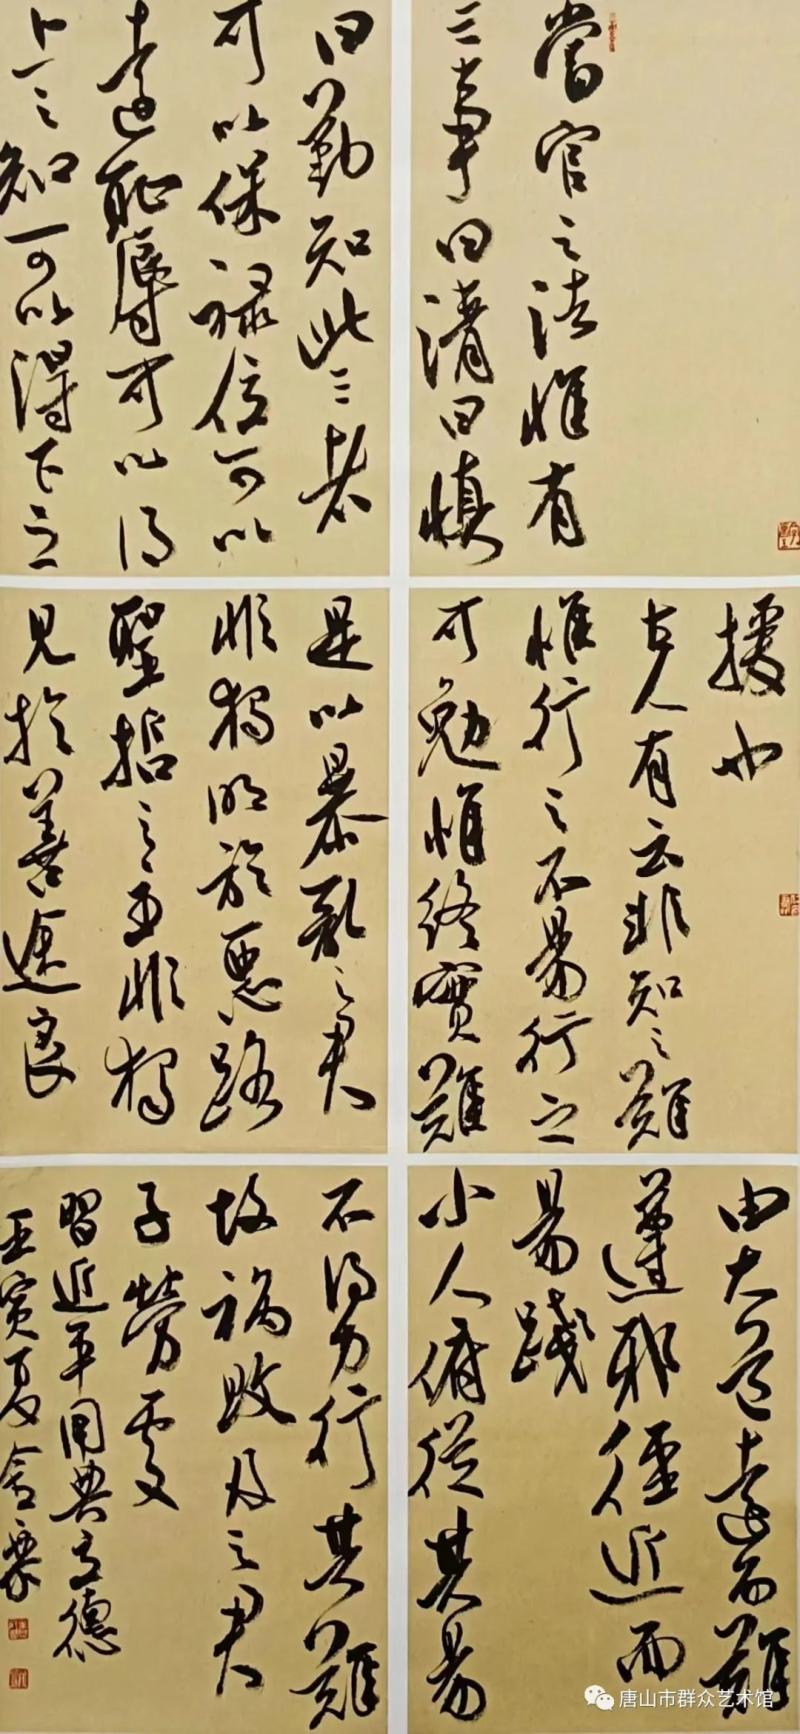 當官之法惟有
三事曰清曰慎
曰勤知此三者
可以保祿位可以
遠恥辱可以得
上之知可以得下之
援也
古人有云非知之難
惟行之不易行之
可勉惟終實難
是以暴亂之君
非獨明於惡路
聖哲之主非獨
見於善途良
由大道遠而難
遵邪徑近而
易踐
小人俯從其易
不得力行其難
故禍敗及之君
子勞處
習近平用典立德
壬寅夏
唐山市群众艺术馆